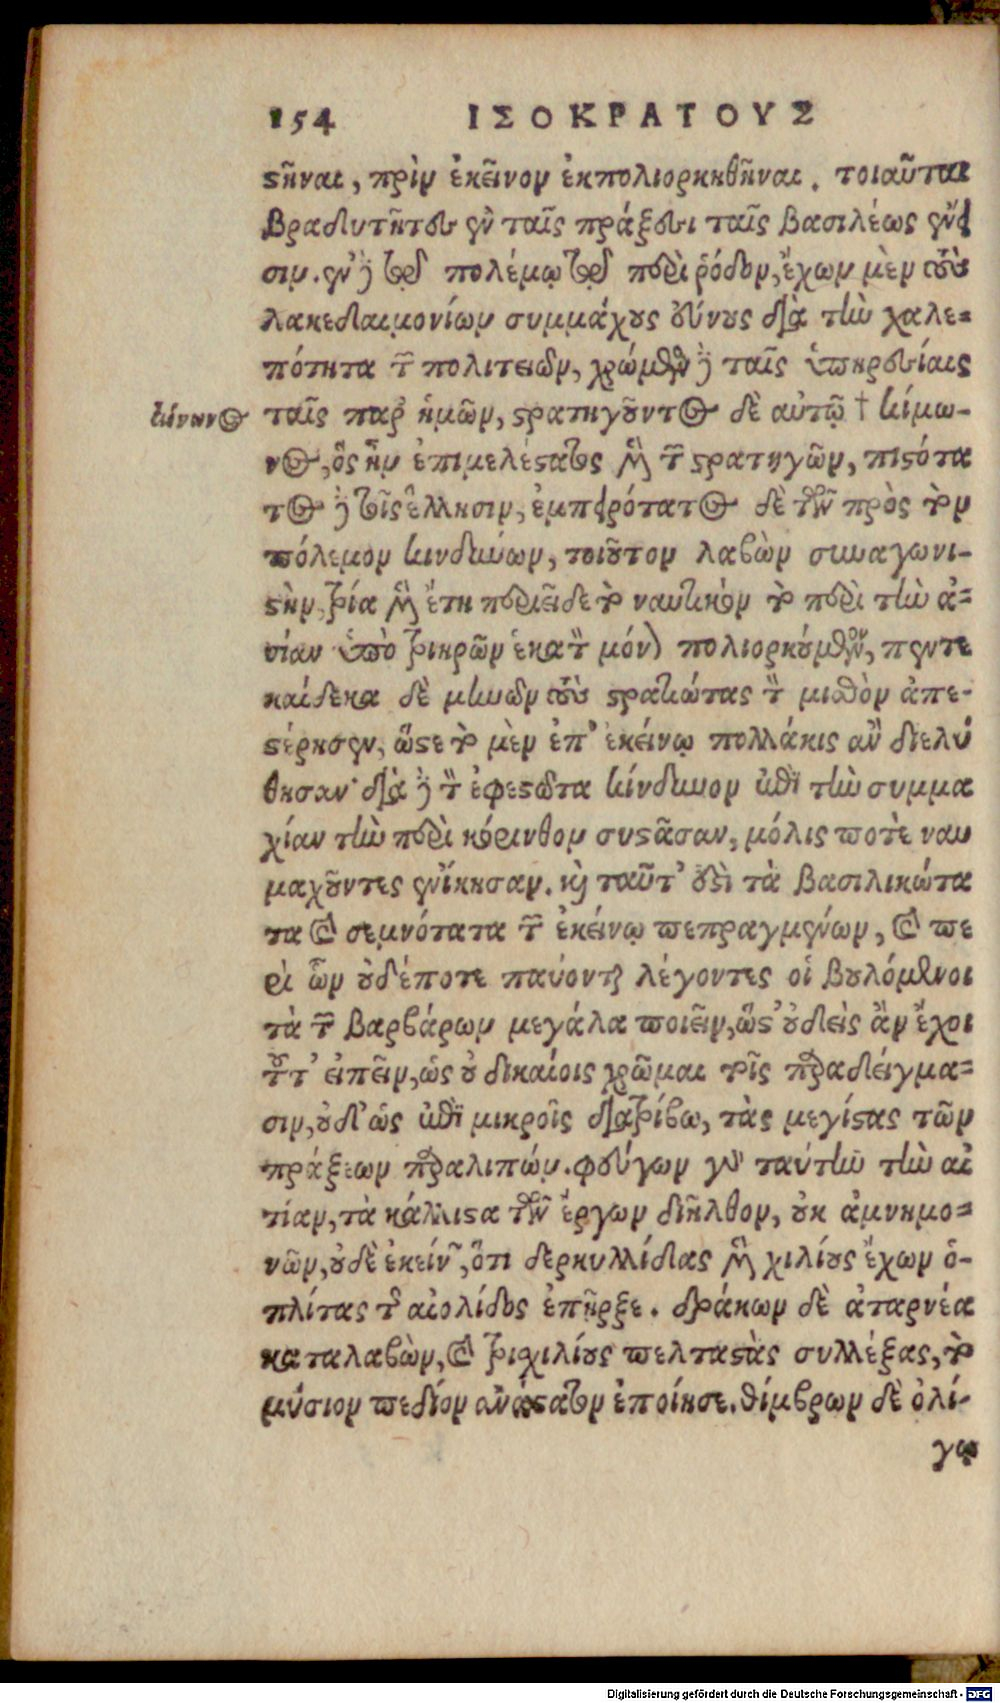 154 ΙΣΟΚΡΑΤΟΥΣ
στῆναι, πρὶν ἐκεῖνον ἐκπολιορκηθῆναι. τοιαῦται
βραδυτῆτες ἐν ταῖς πράξεσι ταῖς βασιλέως ἔνει
σιν. ἐν δὲ τῷ πολέμῳ τῷ περὶ ῥόδον, ἔχων μὲν τοὺς
λακεδαιμονίων συμμάχους εὔνους διὰ τὴν χαλε-
πότητα τῶν πολιτειῶν, χρώμενος δὲ ταῖς ὑπηρεσίαις
κίνωνος
ταῖς παρ' ἡμῶν, στρατηγοῦντος δὲ αὐτῷ † κίμω-
νος, ὃς ἦν ἐπιμελέστατος μὲν τῶν στρατηγῶν, πιστότα
τος δὲ τοῖς ἕλλησιν, ἐμπειρότατος δὲ τῶν πρὸς τὸν
πόλεμον κινδύνων, τοιοῦτον λαβὼν συναγωνι-
στὴν, τρία μὲν ἔτη περιεῖδε τὸ ναυτικὸν τὸ περὶ τὴν ἀ-
σίαν ὑπὸ τριηρῶν ἑκατὸν μόνον πολιορκούμενον, πεντε
καίδεκα δὲ μηνῶν τοὺς στρατιώτας τὸν μισθὸν ἀπε-
στέρησεν, ὥστε τὸ μὲν ἐπ' ἐκείνῳ πολλάκις ἂν διελύ
θησαν· διὰ δὲ τὸν ἐφεστῶτα κίνδυνον καὶ τὴν συμμα
χίαν τὴν περὶ κόρινθον συστᾶσαν, μόλις ποτὲ ναυ
μαχοῦντες ἐνίκησαν. καὶ ταῦτ' ἐστὶ τὰ βασιλικώτα
τα καὶ σεμνότατα τῶν ἐκείνῳ πεπραγμένων, καὶ πε
ρὶ ὧν οὐδέποτε παύονται λέγοντες οἱ βουλόμενοι
τὰ τῶν βαρβάρων μεγάλα ποιεῖν, ὥστ' οὐδεὶς ἂν ἔχοι
τοῦτ' εἰπεῖν, ὡς οὐ δικαίοις χρῶμαι τοῖς παραδείγμα-
σιν, οὐδ' ὡς ἐπὶ μικροῖς διατρίβω, τὰς μεγίστας τῶν
πράξεων παραλιπών. φεύγων γὰρ ταύτην τὴν αἰ
τίαν, τὰ κάλλιστα τῶν ἔργων διῆλθον, οὐκ ἀμνημο-
νῶν, οὐδὲ ἐκείνων, ὅτι δερκυλλίδας μὲν χιλίους ἔχων ὁ-
πλίτας τῆς αἰολίδος ἐπῆρξε. δράκων δὲ ἀταρνέα
καταλαβὼν, καὶ τρισχιλίους πελταστὰς συλλέξας, τὸ
μύσιον πεδίον ἀνάστατον ἐποίησε. θίμβρων δὲ ὀλί-
γῳ
Digitalisierung gefördert durch die Deutsche Forschungsgemeinschaft - DFG